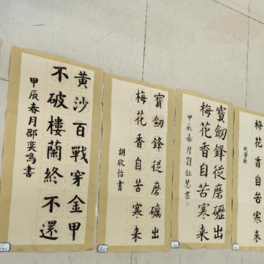 黃沙百戰穿金甲
不破樓蘭終不還
甲辰春月邵奕鳴書
寶劍鋒從磨礪出
梅花香自苦寒來
胡欣怡書
寶劍鋒從磨礪出
梅花香自苦寒來
甲辰春月
書
梅花香自苦寒來